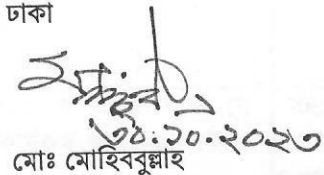 ঢাকা
৩০.১০.২০২৩
মোঃ মোহিববুল্লাহ